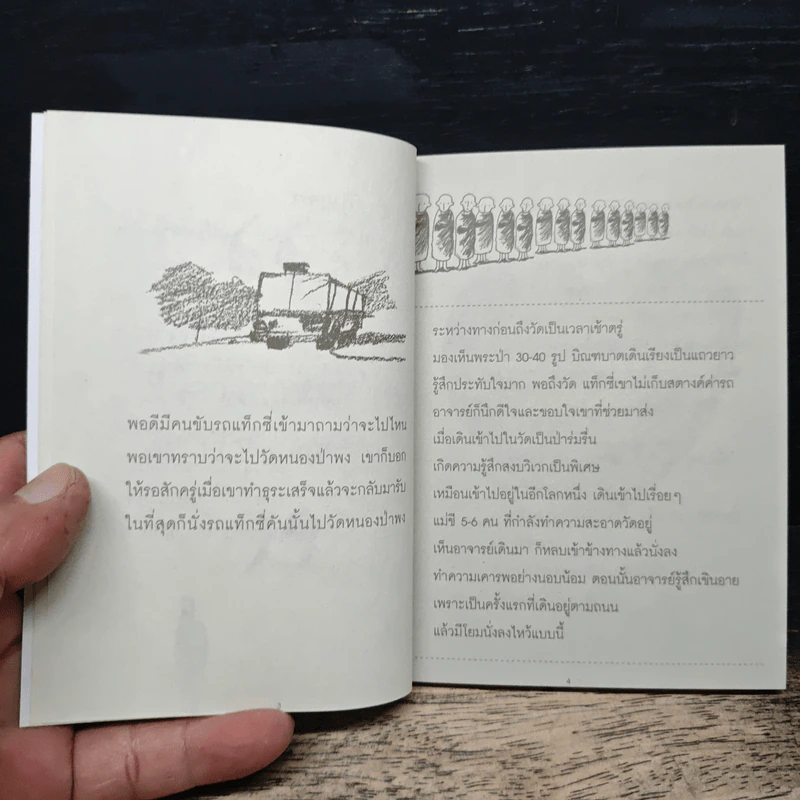 พอดีมีคนขับรถแท็กซี่เข้ามาถามว่าจะไปไหน
พอเขาทราบว่าจะไปวัดหนองป่าพง เขาก็บอก
ให้รอสักครู่เมื่อเขาทำธุระเสร็จแล้วจะกลับมารับ
ในที่สุดก็นั่งรถแท็กซี่คันนั้นไปวัดหนองป่าพง
3
ระหว่างทางก่อนถึงวัดเป็นเวลาเช้าตรู่
มองเห็นพระป่า 30-40 รูป บิณฑบาตเดินเรียงเป็นแถวยาว
รู้สึกประทับใจมาก พอถึงวัด แท็กซี่เขาไม่เก็บสตางค์ค่ารถ
อาจารย์ก็นึกดีใจและขอบใจเขาที่ช่วยมาส่ง
เมื่อเดินเข้าไปในวัดเป็นป่าร่มรื่น
เกิดความรู้สึกสงบวิเวกเป็นพิเศษ
เหมือนเข้าไปอยู่ในอีกโลกหนึ่ง เดินเข้าไปเรื่อยๆ
แม่ชี 5-6 คน ที่กำลังทำความสะอาดวัดอยู่
เห็นอาจารย์เดินมา ก็หลบเข้าข้างทางแล้วนั่งลง
ทำความเคารพอย่างนอบน้อม ตอนนั้นอาจารย์รู้สึกเขินอาย
เพราะเป็นครั้งแรกที่เดินอยู่ตามถนน
แล้วมีโยมนั่งลงไหว้แบบนี้
4